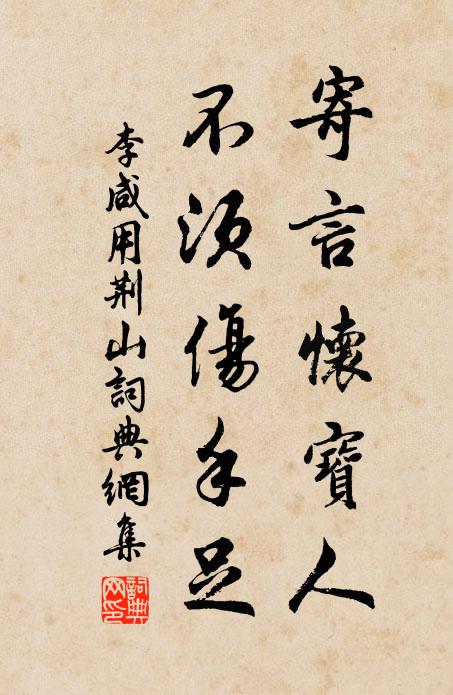 寄言懷寶人
不須傷手足
李咸用荆山詞典網集
詞典網印